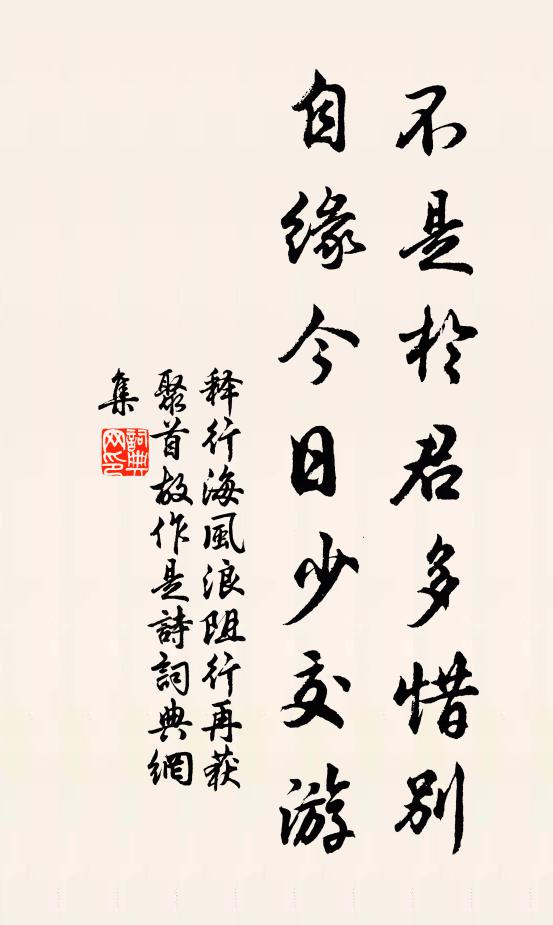 不是於君多惜别
自缘今日少交游
释行海風浪阻行再获
聚首故作是詩詞典網
集
詞典
网印